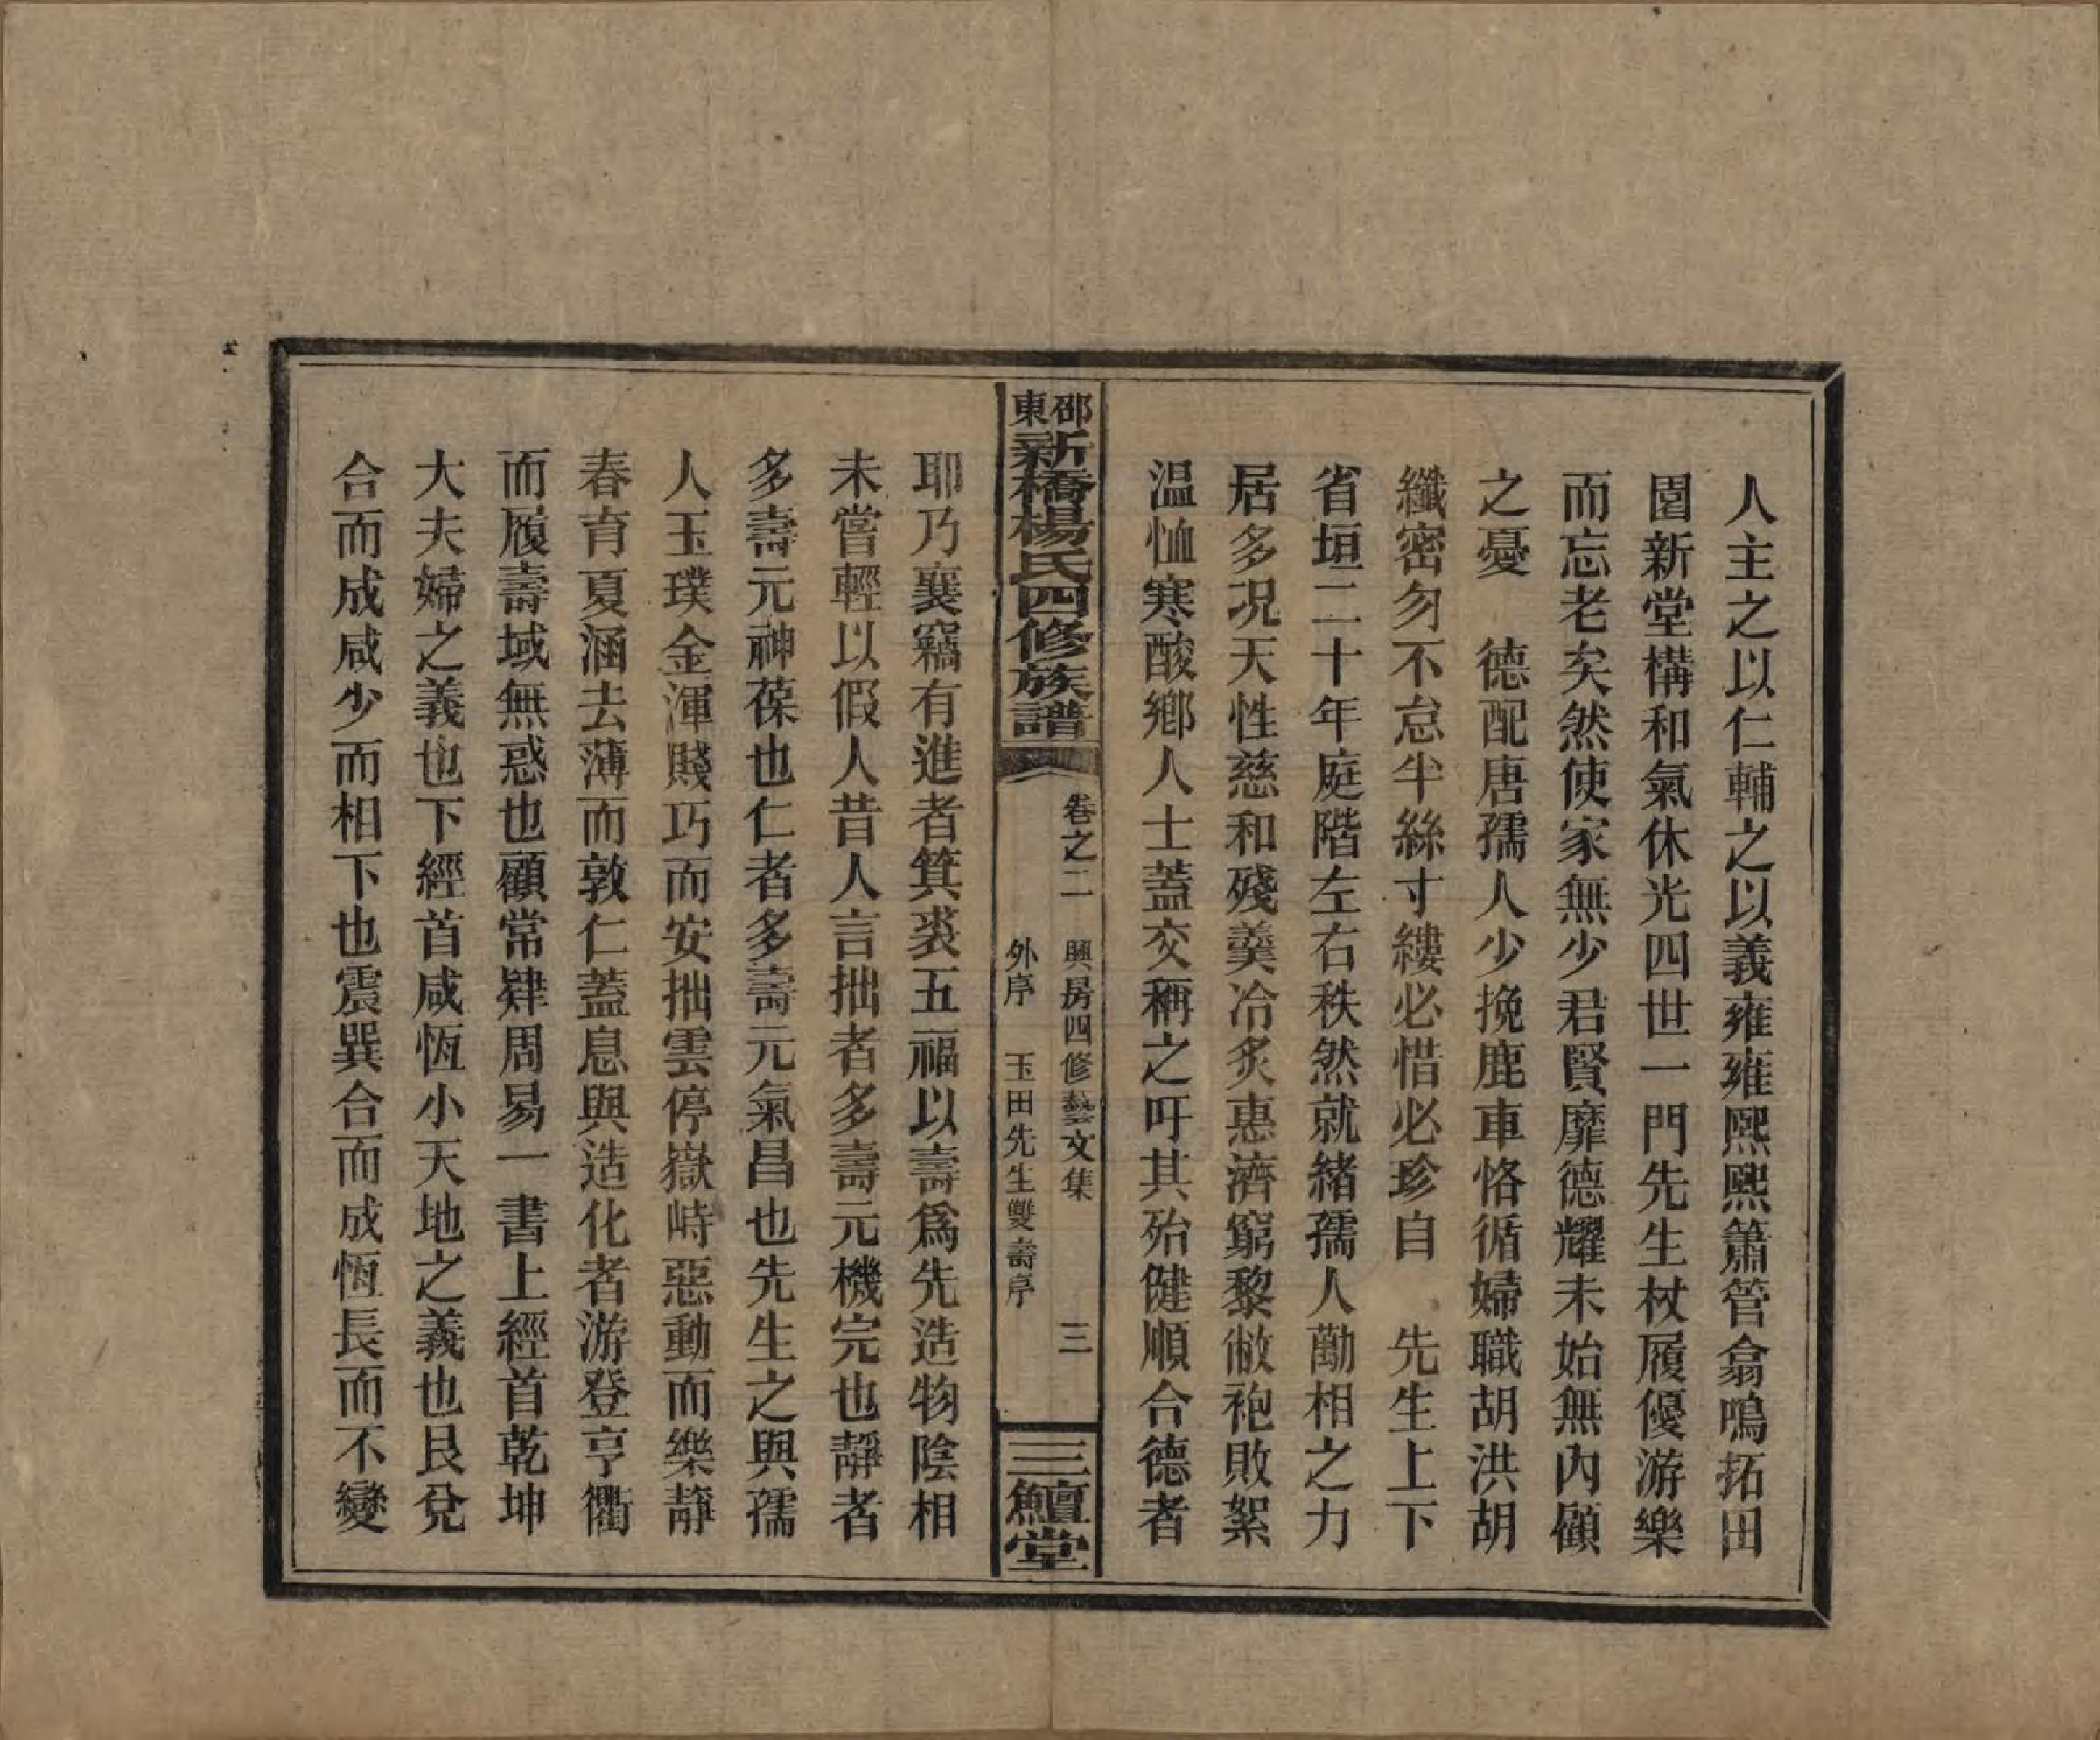 人主之以仁輔之以義雍雍熙熙簫管翕鳴拓田
園新堂構和氣休光四世一門先生杖履優游樂
而忘老矣然使家無少君賢靡德耀未始無內顧
之憂　德配唐孺人少挽鹿車恪循婦職胡洪胡
纖密勿不怠半絲寸縷必惜必珍自　先生上下
省垣二十年庭階左右秩然就緒孺人勤相之力
居多況天性慈和殘羹冷炙惠濟窮黎敝袍敗絮
温恤寒酸鄉人士蓋交稱之吁其殆健順合德者
邵東新橋楊氏四修族譜
卷之二　興房四修藝文集　三
外序　玉田先生雙壽序
三鱣堂
耶乃襄竊有進者箕裘五福以壽爲先造物陰相
未嘗輕以假人昔人言拙者多壽元機完也靜者
多壽元神葆也仁者多壽元氣昌也先生之與孺
人玉璞金渾賤巧而安拙雲停嶽峙惡動而樂靜
春育夏涵去薄而敦仁蓋息與造化者游登亨衢
而履壽域無惑也顧常肄周易一書上經首乾坤
大夫婦之義也下經首咸恆小天地之義也艮兌
合而成咸少而相下也震巽合而成恆長而不變